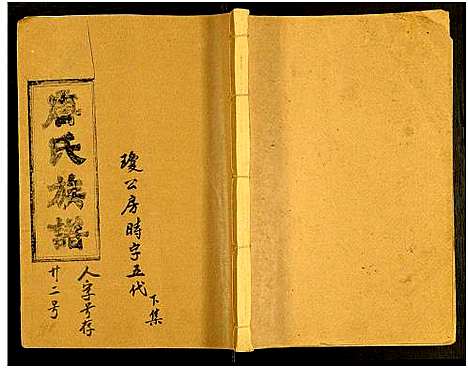 瓊公房時字五代
下集
唐氏族譜
人字号存
廿二号